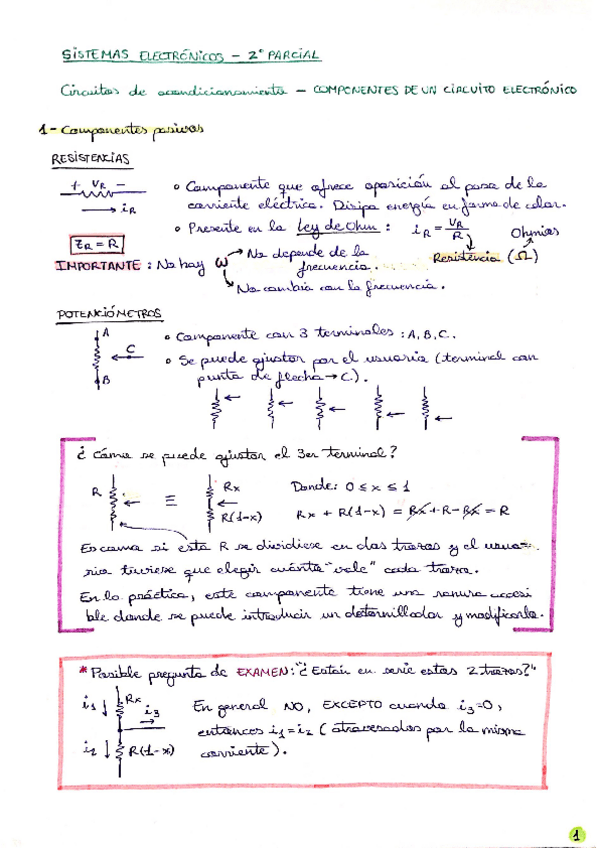 SISTEMAS ELECTRÓNICOS - 2º PARCIAL
Circuitos de acondicionamiento - COMPONENTES DE UN CIRCUITO ELECTRÓNICO
1- Componentes pasivos
RESISTENCIAS
+ VR -
→ iR
• Componente que ofrece oposición al paso de la
corriente eléctrica. Disipa energía en forma de calor.
• Presente en la Ley de Ohm: iR = VR/R
Ohmios
Resistencia (Ω)
ZR = R
IMPORTANTE: No hay ω
No depende de la
frecuencia.
No cambia con la frecuencia.
POTENCIÓMETROS
A
C
B
• Componente con 3 terminales: A, B, C.
• Se puede ajustar por el usuario (terminal con
punta de flecha → C).
¿Cómo se puede ajustar el 3er terminal?
R ≡ Rx
R(1-x)
Donde: 0 ≤ x ≤ 1
Rx + R(1-x) = Rx + R - Rx = R
Es como si esta R se dividiese en dos trozos y el usua-
rio tuviese que elegir cuánto "vale" cada trozo.
En la práctica, este componente tiene una ranura accesi
ble donde se puede introducir un destornillador y modificarlo.
*Posible pregunta de EXAMEN: "¿Están en serie estos 2 trozos?"
i1 ↓ Rx
i3 →
i2 ↓ R(1-x)
En general NO, EXCEPTO cuando i3=0,
entonces i1=i2 (atravesados por la misma
corriente).
1